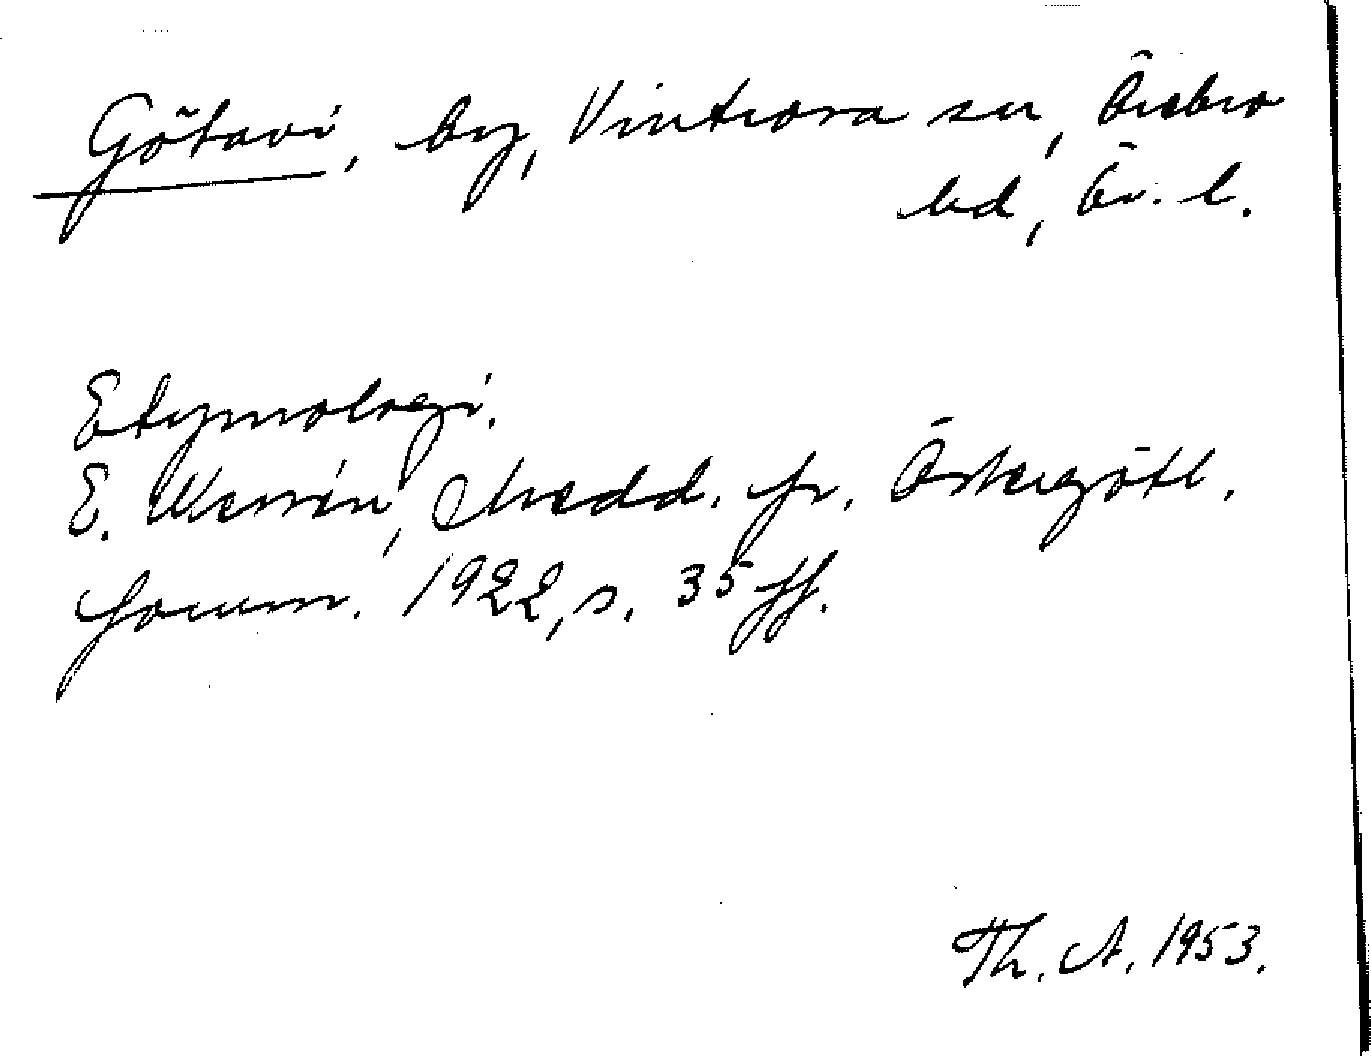 Götavi, by, Vintrosa sn, Örebro
hd, Ör. l.
Etymologi.
E. Wessén, Medd. fr. Östergötl.
fornm. 1922, s. 35 ff.
Th. A. 1953.